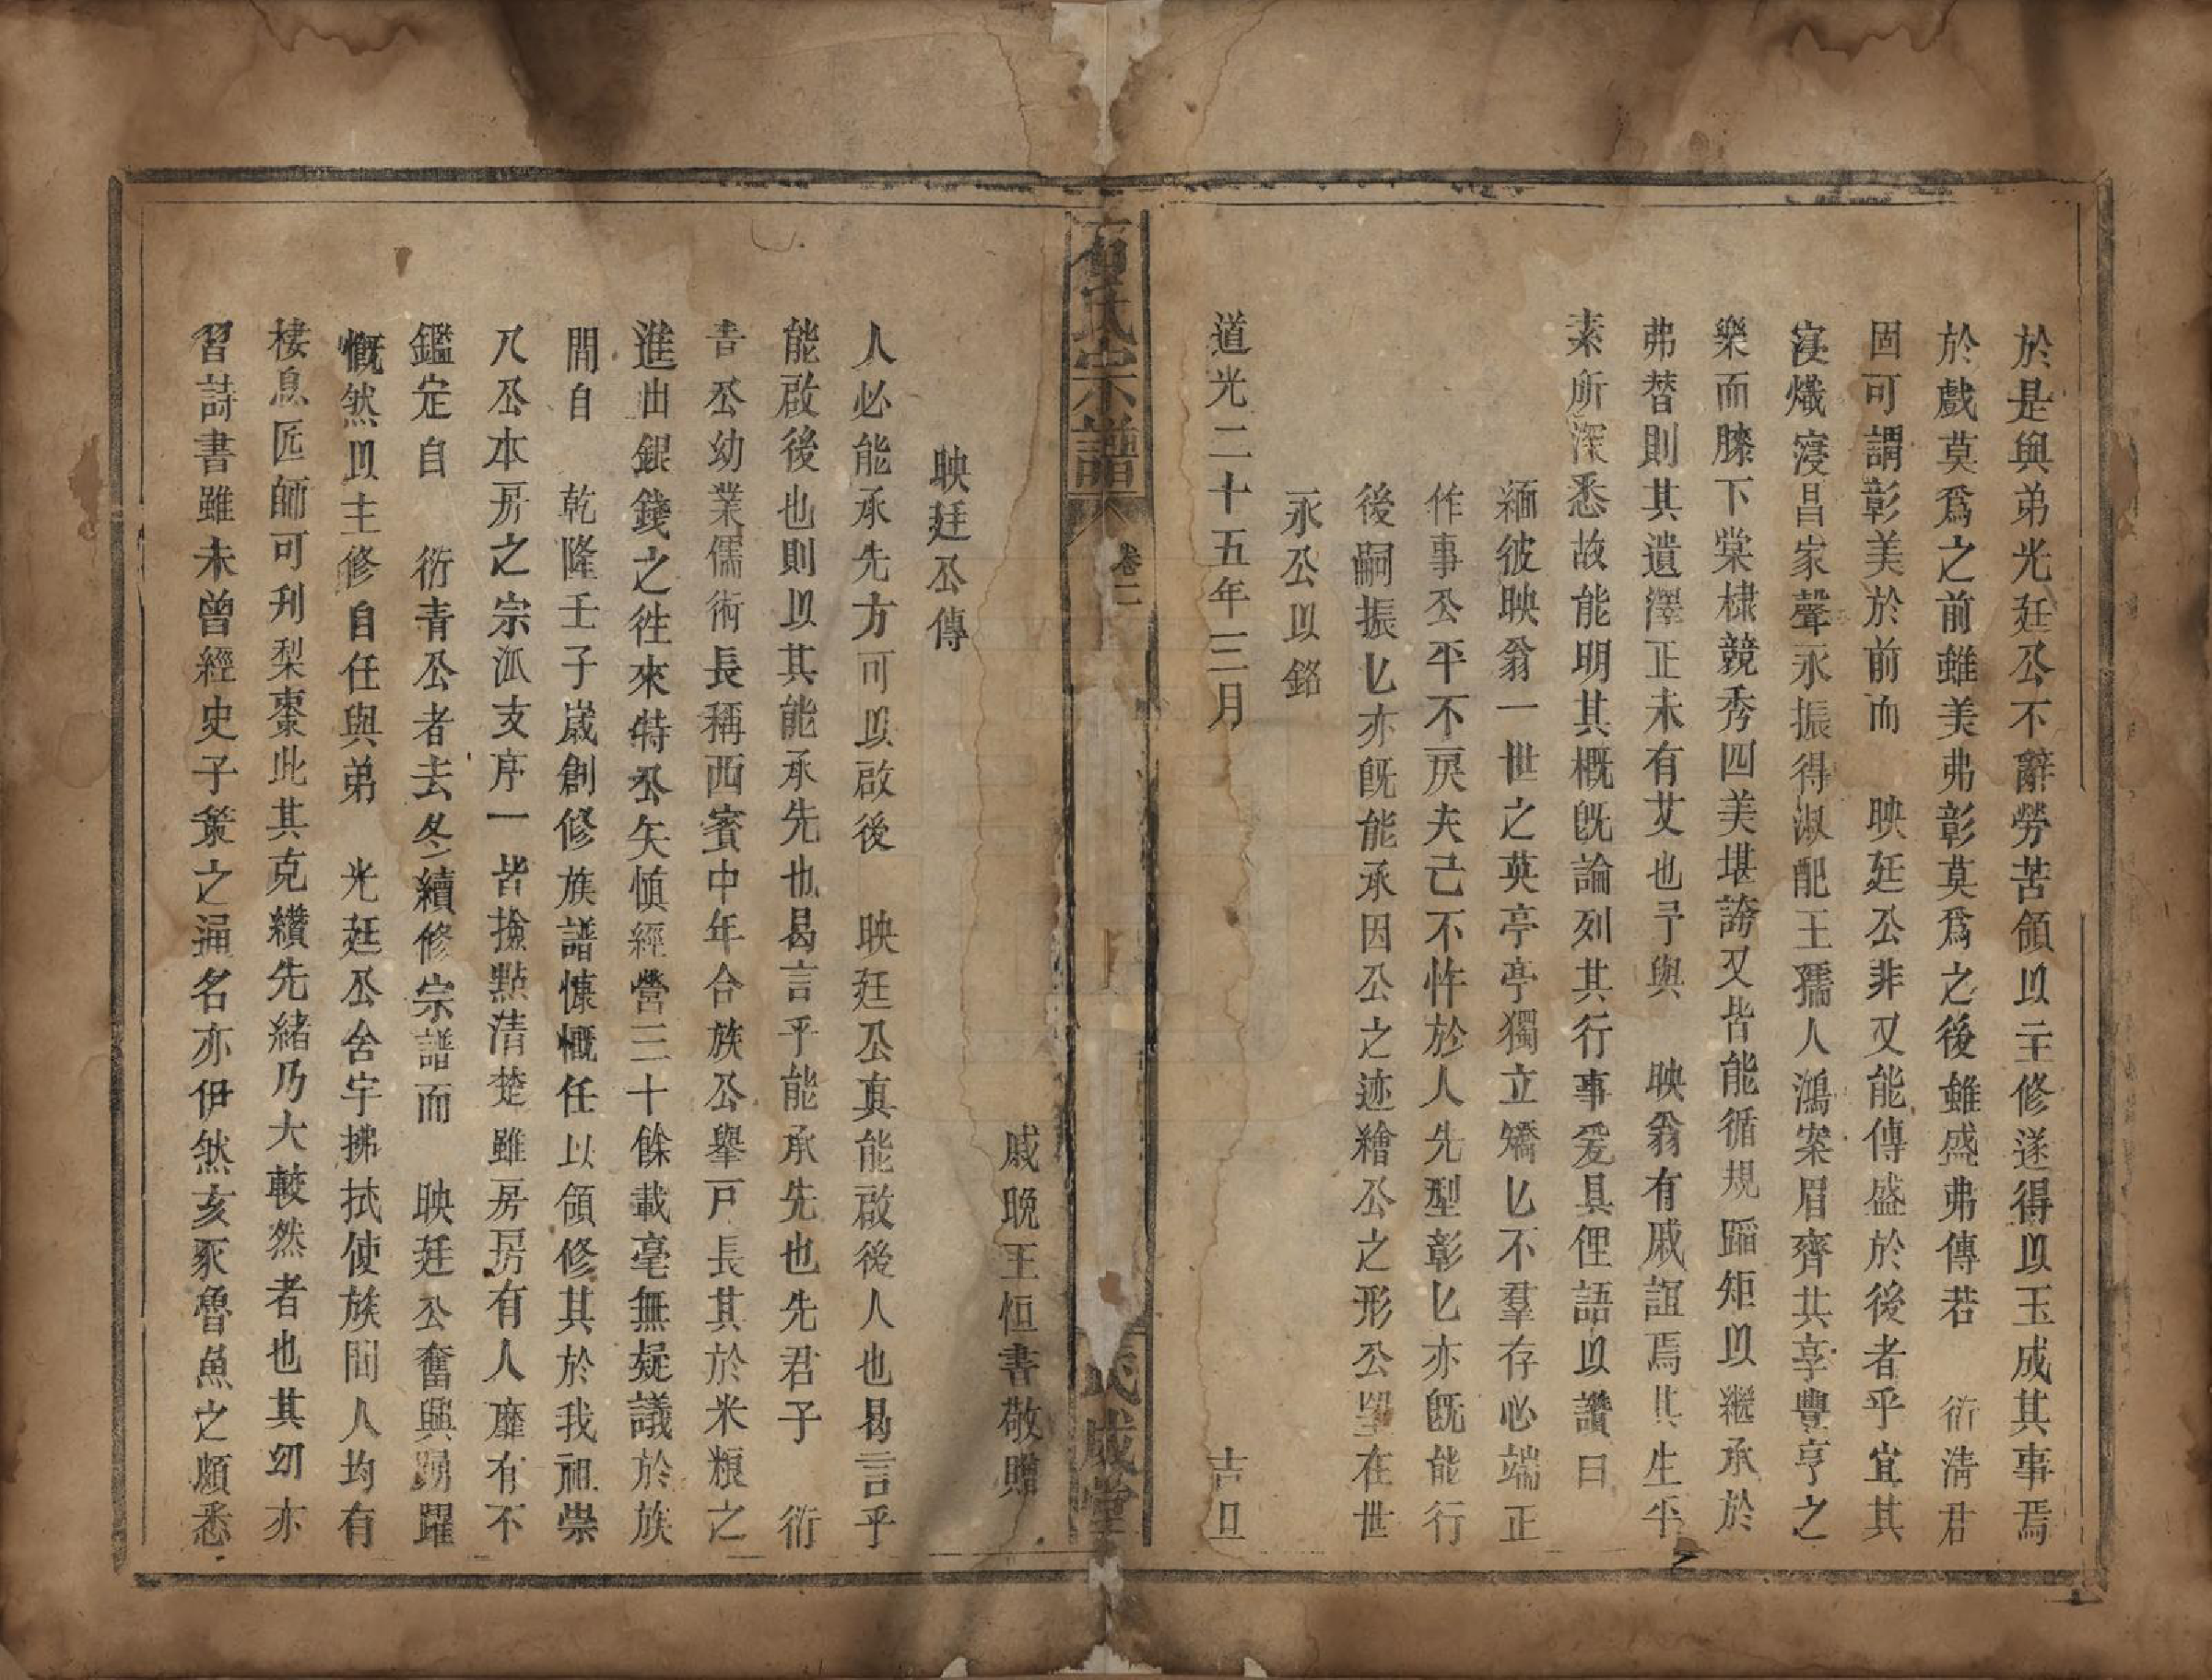 於是與弟光廷公不辭勞苦領以主修遂得以玉成其事焉
於戲莫爲之前雖美弗彰莫爲之後雖盛弗傳若　衍清君
固可謂彰美於前而　映廷公非又能傳盛於後者乎宜其
寖熾寖昌家聲永振得淑配王孺人鴻案眉齊共享豐亨之
樂而膝下棠棣競秀四美堪誇又皆能循規蹈矩以繼承於
弗替則其遺澤正未有艾也予與　映翁有戚誼焉其生平
素所深悉故能明其概旣論列其行事爰具俚語以讚曰
緬彼映翁一世之英亭亭獨立矯匕不羣存心端正
作事公平不戾夫己不忤於人先型彰匕亦旣能行
後嗣振匕亦旣能承因公之迹繪公之形公朢在世
永公以銘
道光二十五年三月　吉旦
氏宗譜
卷二
戚晩王恒書敬贈
映廷公傳
人必能承先方可以啟後　映廷公真能啟後人也曷言乎
能啟後也則以其能承先也曷言乎能承先也先君子　衍
青公幼業儒術長稱西賓中年合族公舉戸長其於米粮之
進出銀錢之徃來特公矢慎經營三十餘載毫無疑議於族
間自　乾隆壬子嵗創修族譜慷慨任以領修其於我祖崇
八公本房之宗派支序一皆撿點清楚雖房房有人靡有不
鑑定自　衍青公者去冬續修宗譜而　映廷公奮興踴躍
慨然以主修自任與弟　光廷公舍宇拂拭使族間人均有
棲息匠師可刋梨棗此其克纘先緒乃大較然者也其初亦
習詩書雖未曾經史子策之通名亦伊然亥豕魯魚之頗悉